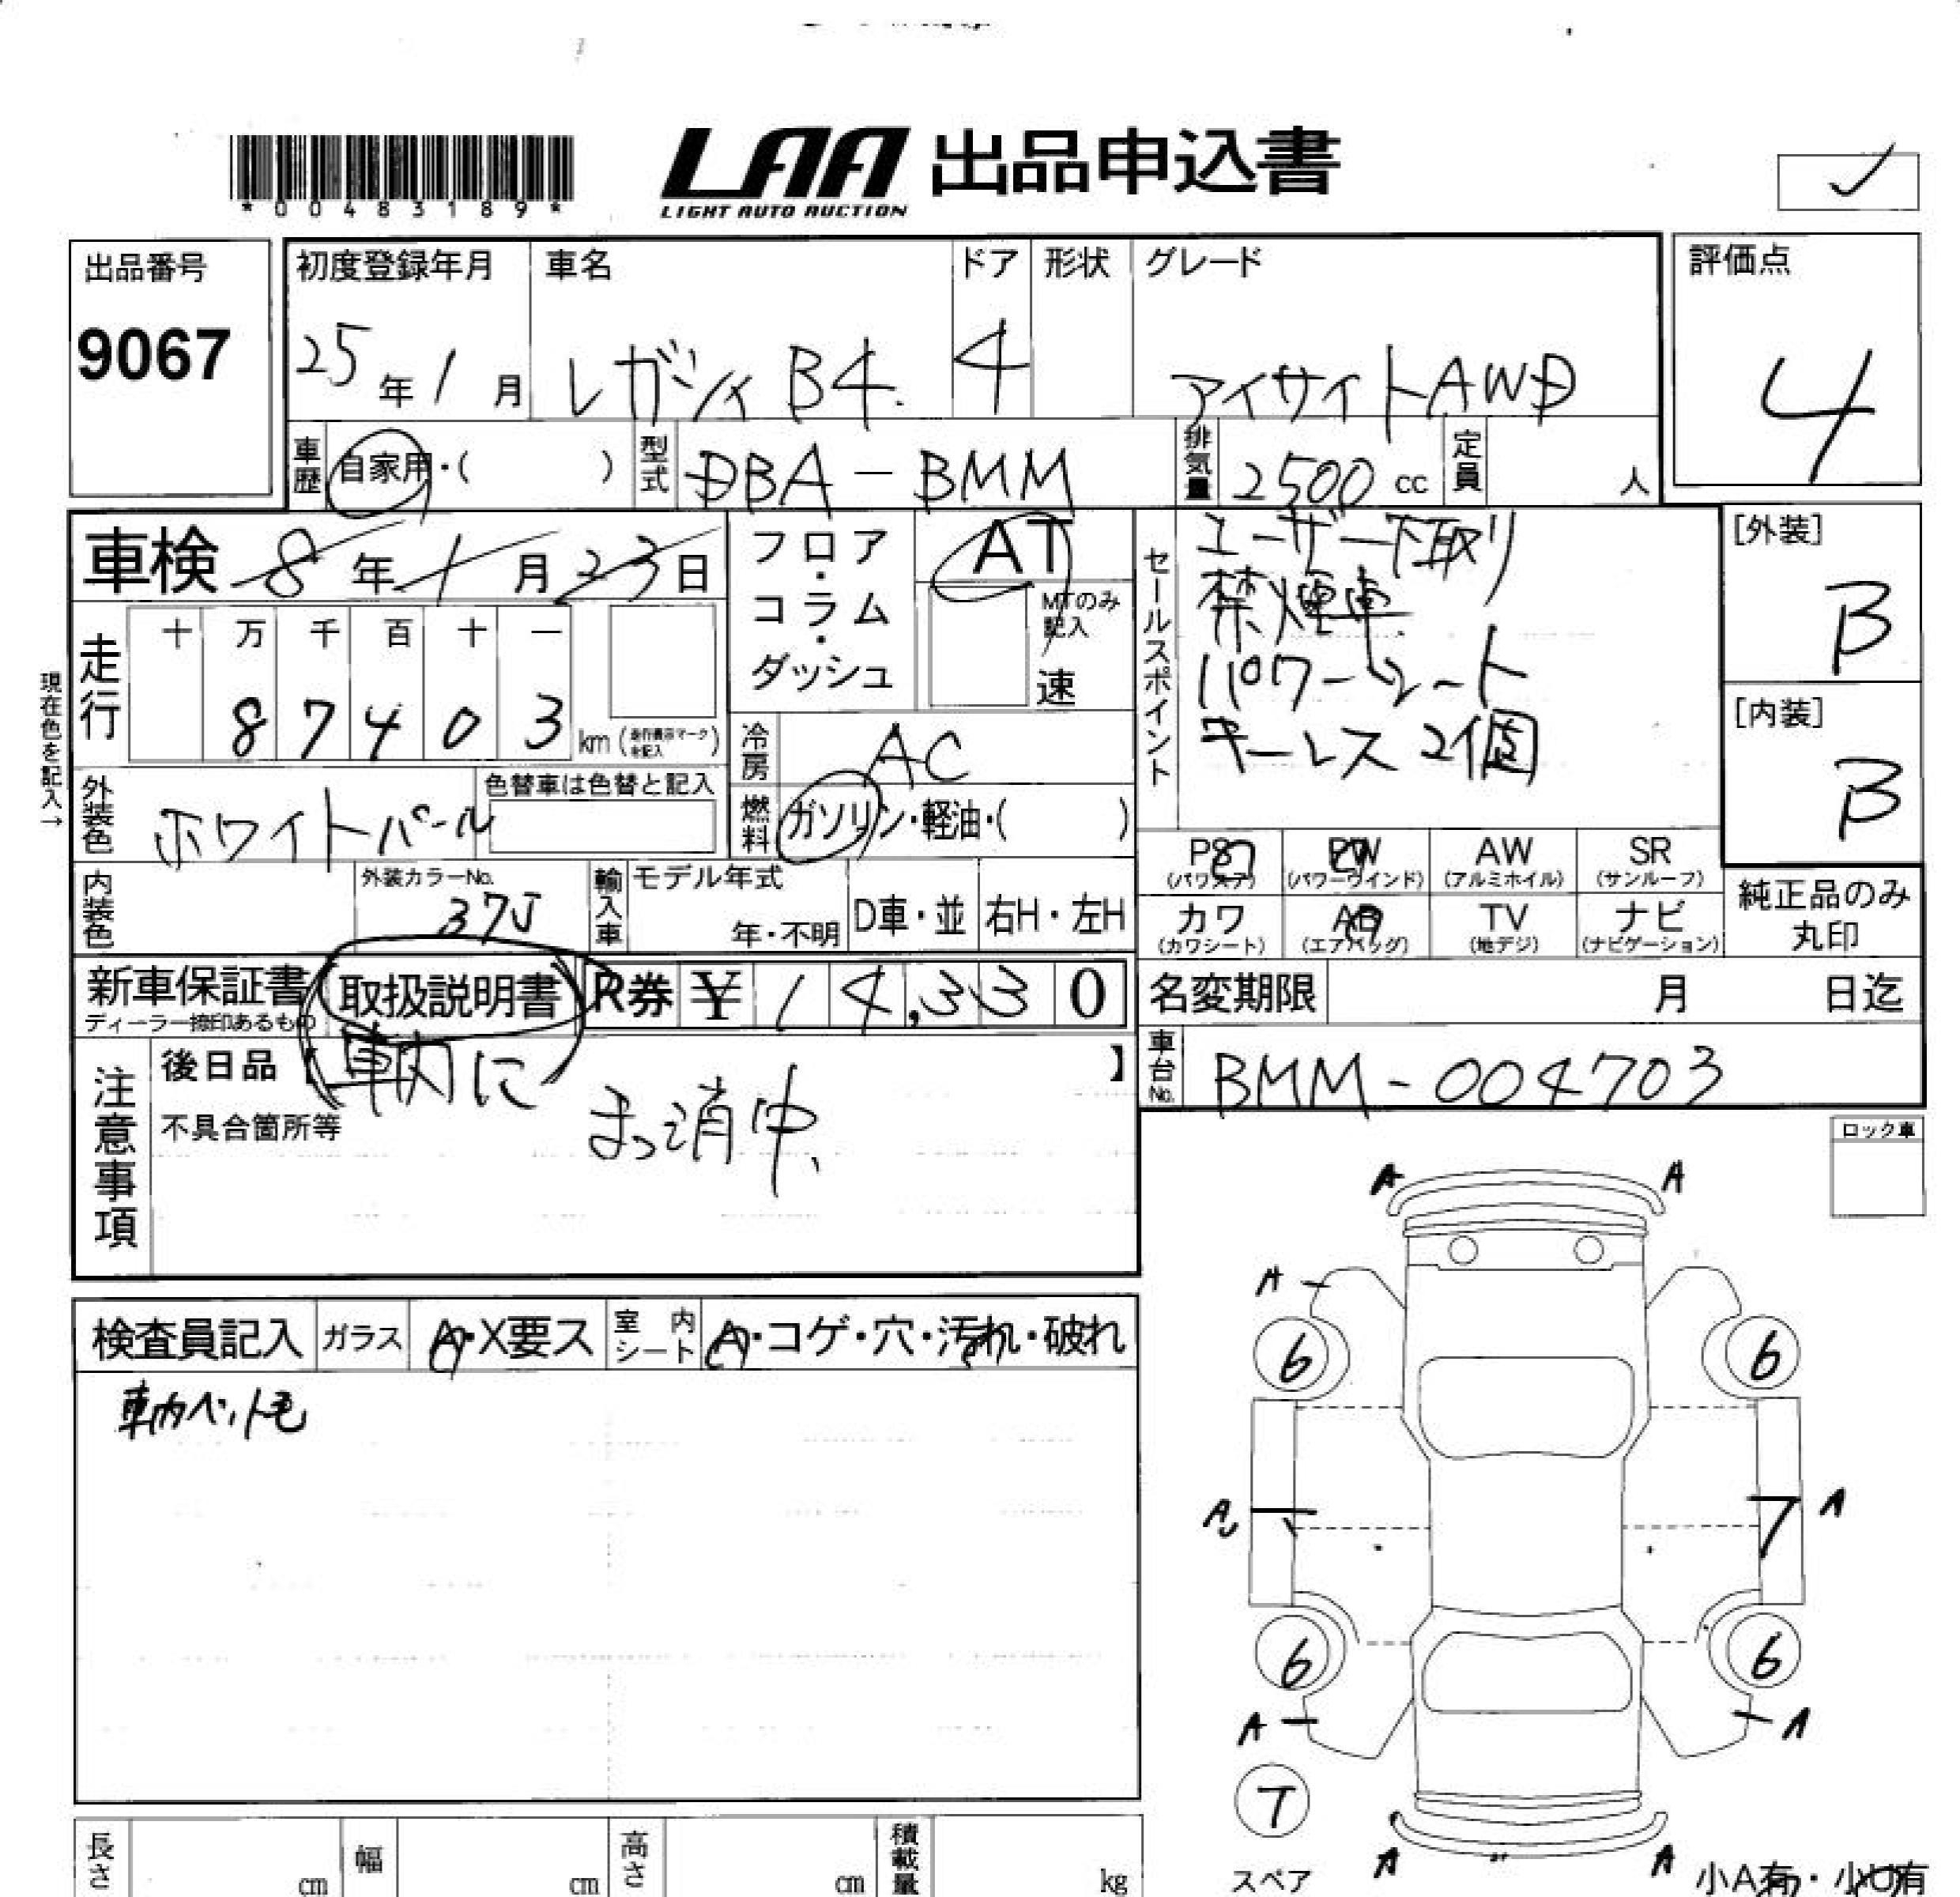 *00483189*
LAA 出品申込書
LIGHT AUTO AUCTION
出品番号
9067
初度登録年月
25年1月
車名
レガシィ B4.
ドア
4
形状
グレード
アイサイトAWD
評価点
4
車歴
自家用・( )
型式
DBA-BMM
排気量
2500 cc
定員
人
車検 8年1月23日
フロア・コラム・ダッシュ
AT
MTのみ記入
速
セールスポイント
ユーザー下取り
禁煙車.
パワーシート
キーレス 2個
[外装]
B
[内装]
B
現在色を記入→
走行
十 万 千 百 十 一
8 7 4 0 3 km
冷房
AC
外装色
ホワイトパール
色替車は色替と記入
燃料
ガソリン・軽油・( )
PS PW AW SR
(パワステ) (パワーウインド) (アルミホイル) (サンルーフ)
カワ AB TV ナビ
(カワシート) (エアバッグ) (地デジ) (ナビゲーション)
純正品のみ
丸印
内装色
外装カラーNo.
37J
輸入車
モデル年式
年・不明
D車・並
右H・左H
新車保証書
ディーラー捺印あるもの
取扱説明書
R券 ¥ 14,330
名変期限
月 日迄
車台No.
BMM-004703
注意事項
後日品【車内に 】
不具合箇所等
まっ消中
ロック車
検査員記入
ガラス
A・X要ス
室内シート
A・コゲ・穴・汚れ・破れ
車内ペット毛
A A
A
6 6
A
A
6 6
A A
T
スペア
A A
小A有・小U有
長さ cm
幅 cm
高さ cm
積載量 kg